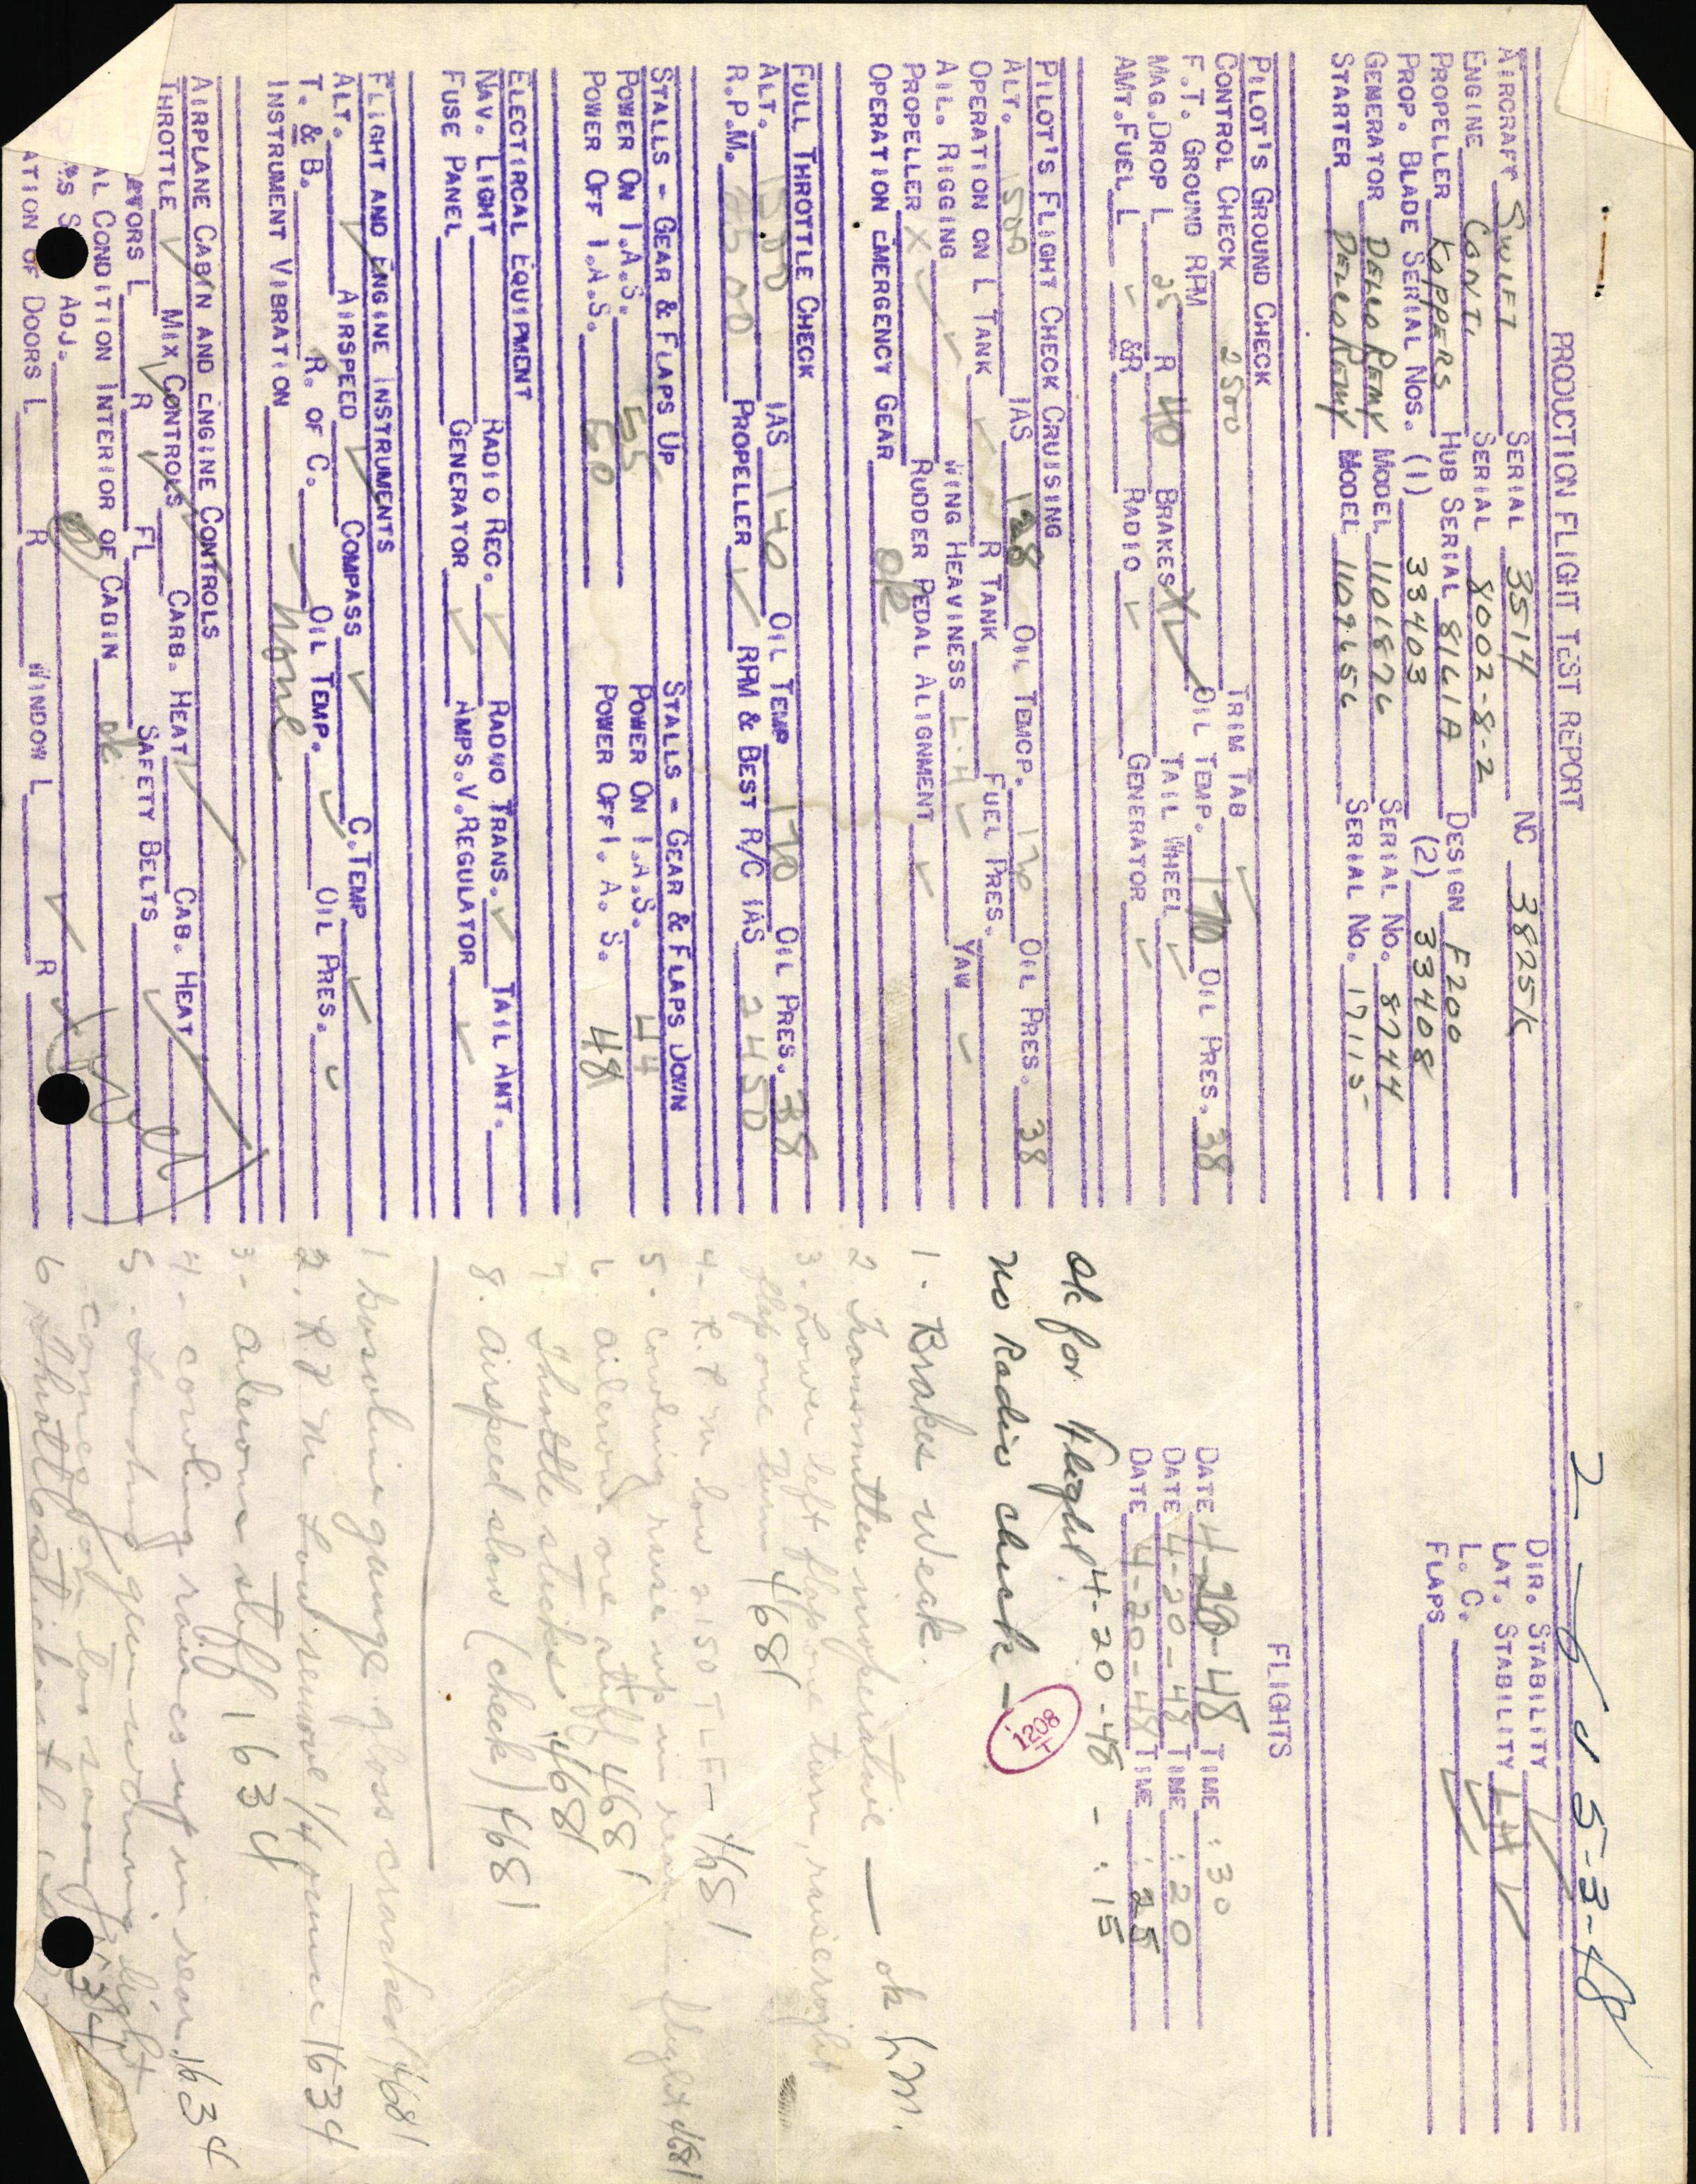 2-6 u 5-3-48
PRODUCTION FLIGHT TEST REPORT
AIRCRAFT SWIFT SERIAL 3514 NC 3825K
ENGINE CONT. SERIAL 8002-8-2
PROPELLER KOPPERS HUB SERIAL 8141A DESIGN F200
PROP. BLADE SERIAL NOS. (1) 33403 (2) 33408
GENERATOR DELCO REMY MODEL 1101876 SERIAL NO. 8744
STARTER DELCO REMY MODEL 1109656 SERIAL NO. 17115
DIR. STABILITY
LAT. STABILITY LH
L. C.
FLAPS
PILOT'S GROUND CHECK
CONTROL CHECK TRIM TAB
F.T. GROUND RPM 2500 OIL TEMP. 170 OIL PRES. 38
MAG.DROP L 25 R 40 BRAKES X TAIL WHEEL
AMT.FUEL L &R RADIO GENERATOR
PILOT'S FLIGHT CHECK CRUISING
ALT. 1500 IAS 128 OIL TEMCP. 170 OIL PRES. 38
OPERATION ON L TANK R TANK FUEL PRES.
AIL. RIGGING WING HEAVINESS L.H YAW
PROPELLER X RUDDER PEDAL ALIGNMENT
OPERATION EMERGENCY GEAR ok
FULL THROTTLE CHECK
ALT. 1500 IAS 140 OIL TEMP 170 OIL PRES. 38
R.P.M. 2500 PROPELLER RPM & BEST R/C IAS 2450
STALLS - GEAR & FLAPS UP STALLS - GEAR & FLAPS DOWN
POWER ON I.A.S. 55 POWER ON I.A.S. 44
POWER OFF I.A.S. 60 POWER OFF I. A. S. 48
ELECTIRCAL EQUIPMENT
NAV. LIGHT RADIO REC. RADIO TRANS. TAIL ANT.
FUSE PANEL GENERATOR AMPS.V.REGULATOR
FLIGHT AND ENGINE INSTRUMENTS
ALT. AIRSPEED COMPASS C.TEMP
T. & B. R. OF C. OIL TEMP. OIL PRES.
INSTRUMENT VIBRATION None
AIRPLANE CABIN AND ENGINE CONTROLS
THROTTLE MIX CONTROLS CARB. HEAT CAB. HEAT
ATORS L R FL SAFETY BELTS
AL CONDITION INTERIOR OF CABIN ok
ADJ.
ATION OF DOORS L R WINDOW L R
FLIGHTS
DATE 4-20-48 TIME :30
DATE 4-20-48 TIME :20
DATE 4-20-48 TIME :25
4-20-48 - :15
ok for flight
No Radio check -
1208 T
1 - Brakes weak.
2 Transmitter inoperative — ok
3. Lower left flap one turn, raise right
flap one turn 4681
4- R.P.M low 2150 4681
5- cowling raise up in rear in flight 4681
6 aileron one stiff 4681
7 Throttle sticks 4681
8. airspeed slow (check) 4681
1 Gasoline gauge glass cracked 4681
2. R.P.M Low remove 1/4 1634
3- ailerons stiff 1634
4- cowling raises up in rear. 1634
5. Landing gear warning light
comes on too soon
6 Throttle sticks